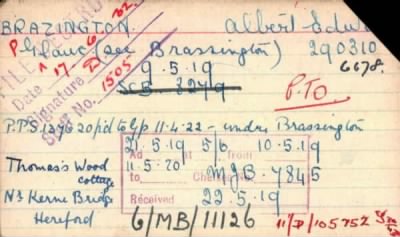 BRAZINGTON. Albert Edw
P. Glouc (see Brassington) 290310
A 17 D 6678.
Date
Signature
Staff No. 1505
9.5.19
SCB 3279
P.T.O.
P.P.S. 1276 20 pd to G/p 11.4.22 - under Brassington
21.5.19 5/6 10.5.19
from
Thomas's Wood 11.5.20
Cottage to MJB-7845
Nr Kerne Bridge Received 22.5.19
Hereford 6/MB/11126 11/D/105752